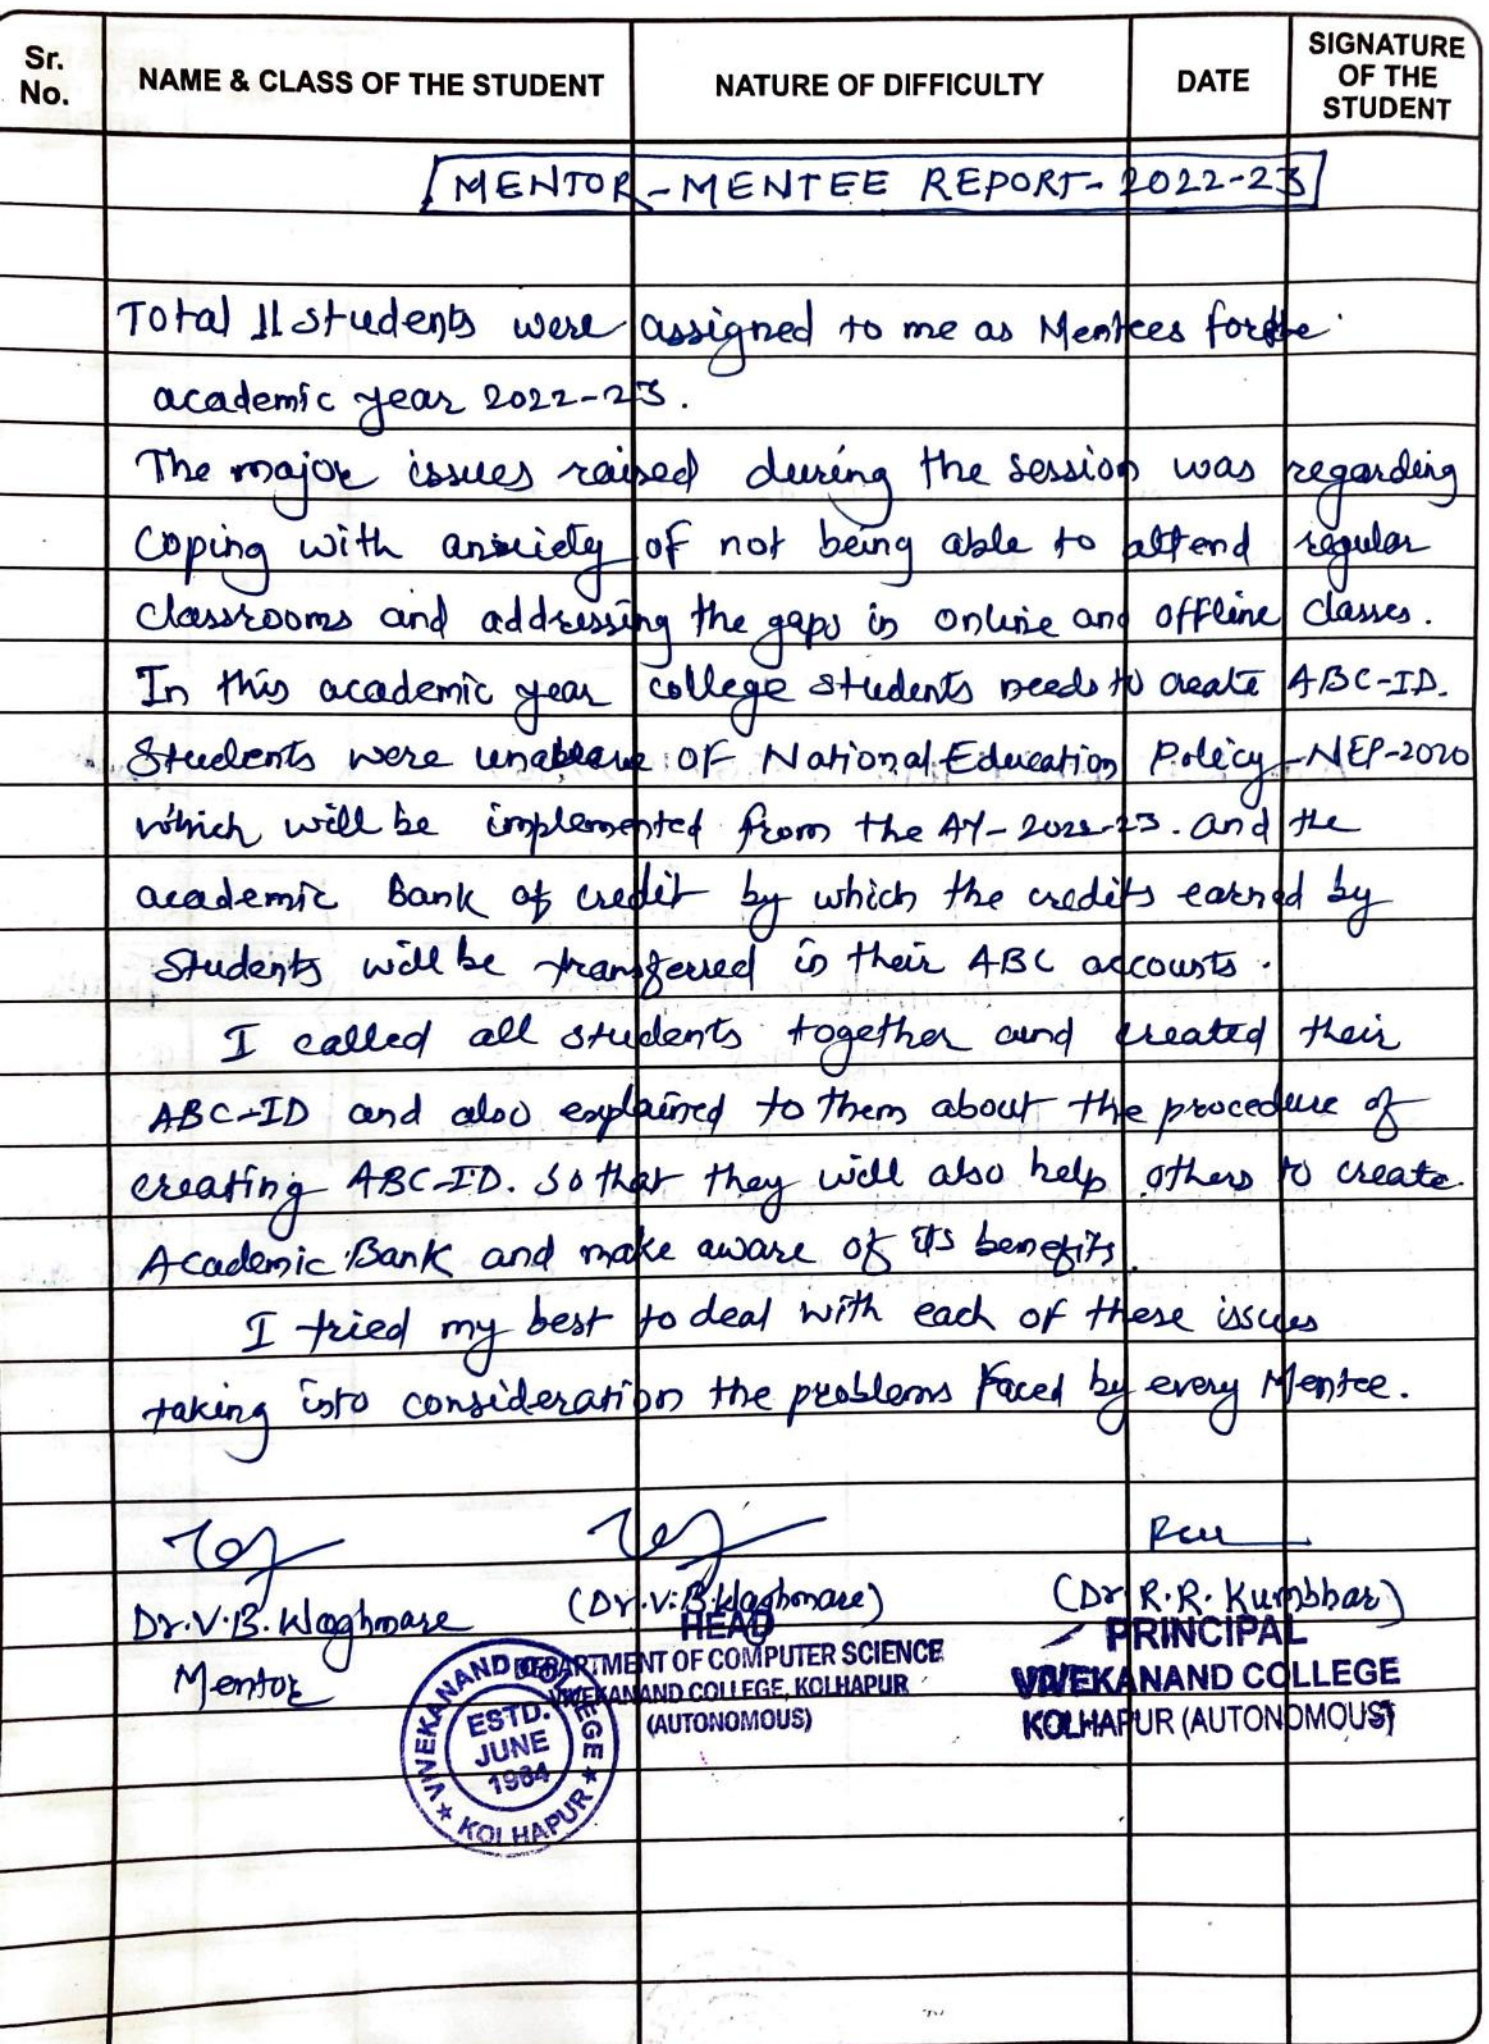 Sr. No.
NAME & CLASS OF THE STUDENT
NATURE OF DIFFICULTY
DATE
SIGNATURE OF THE STUDENT
MENTOR-MENTEE REPORT-2022-23
Total 11 students were assigned to me as Mentees for the
academic year 2022-23.
The major issues raised during the session was regarding
coping with anxiety of not being able to attend regular
classrooms and addressing the gaps in online and offline classes.
In this academic year college students needs to create ABC-ID.
Students were of National Education Policy-NEP-2020
which will be implemented from the AY-2022-23. and the
academic Bank of credit by which the credits earned by
students will be transferred in their ABC accounts.
I called all students together and created their
ABC-ID and also explained to them about the procedure of
creating ABC-ID. So that they will also help others to create
Academic Bank and make aware of its benefits.
I tried my best to deal with each of these issues
taking into consideration the problems faced by every Mentee.
Dr. V.B. Waghmare
Mentor
(Dr. V.B. Waghmare)
HEAD
DEPARTMENT OF COMPUTER SCIENCE
VIVEKANAND COLLEGE, KOLHAPUR
(AUTONOMOUS)
(Dr R.R. Kumbhar)
PRINCIPAL
VIVEKANAND COLLEGE
KOLHAPUR (AUTONOMOUS)
VIVEKANAND COLLEGE ★ KOLHAPUR ★
ESTD.
JUNE
1964